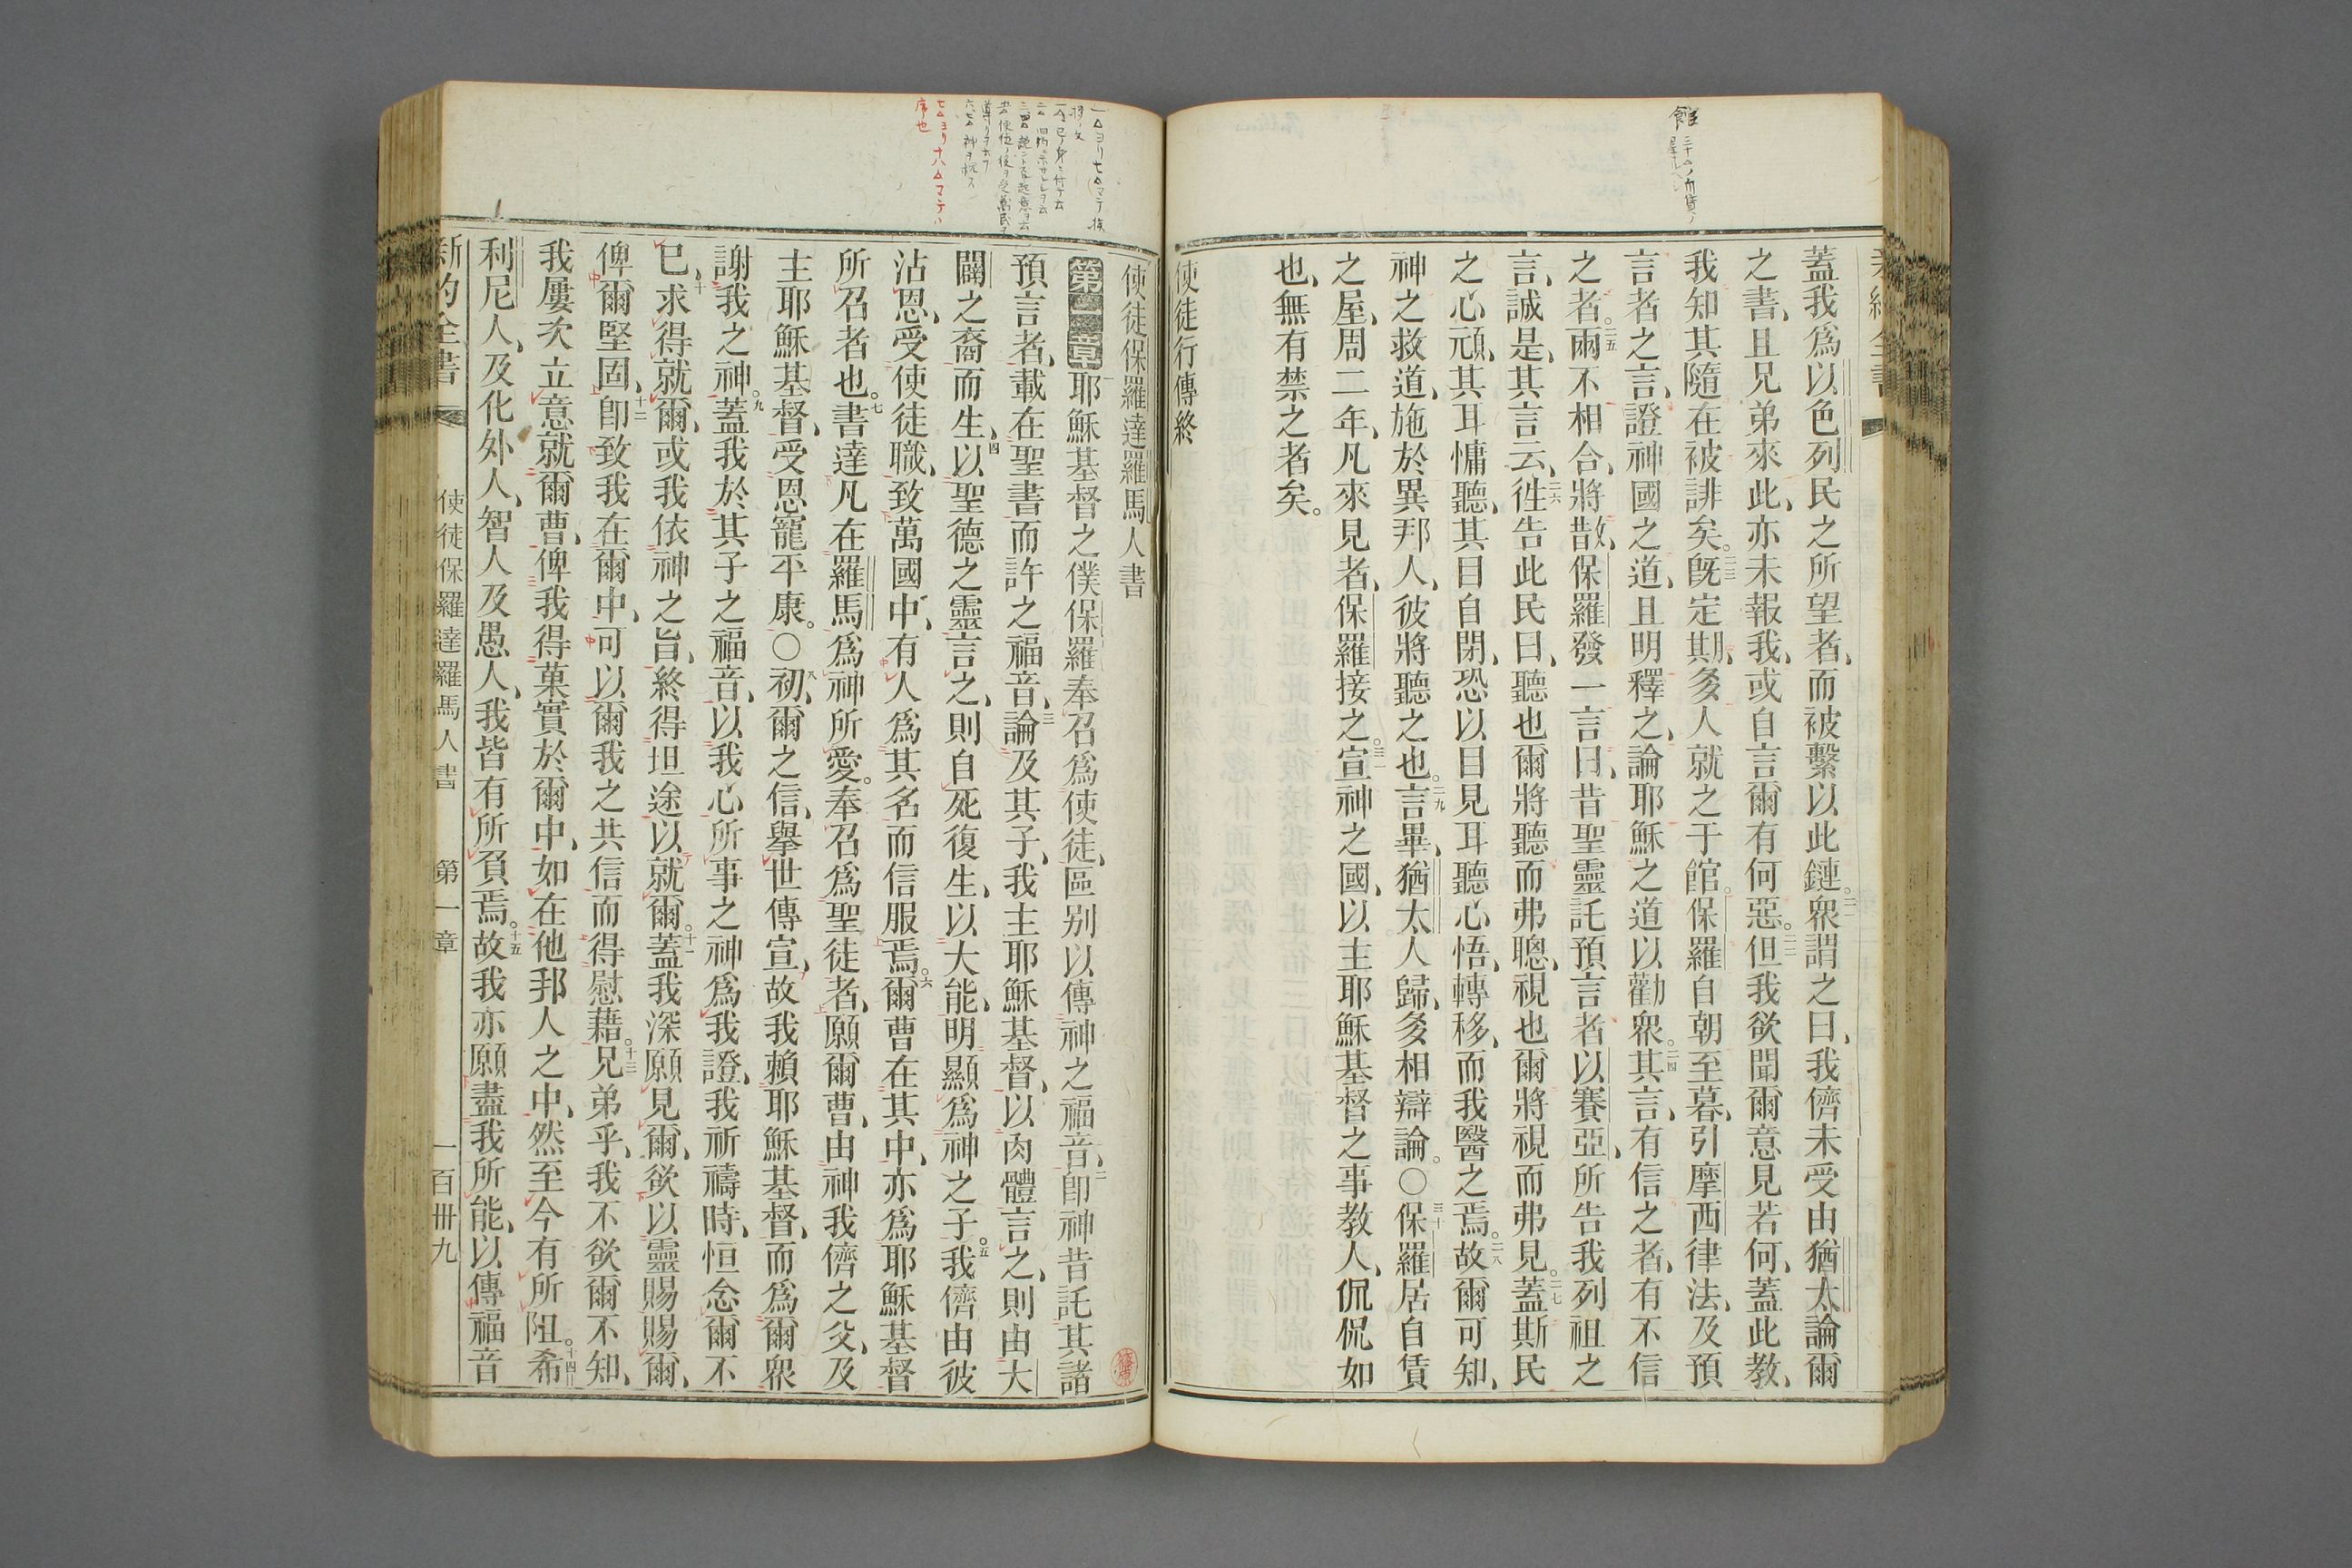 蓋我爲以色列民之所望者、而被繫以此鏈。二一衆謂之曰、我儕未受由猶太論爾
之書、且兄弟來此、亦未報我、或自言爾有何惡。二二但我欲聞爾意見若何、蓋此教、
我知其隨在被誹矣。二三旣定期、多人就之于館。保羅自朝至暮、引摩西律法、及預
言者之言、證神國之道、且明釋之、論耶穌之道以勸衆。二四其言、有信之者、有不信
之者。二五兩不相合、將散、保羅發一言曰、昔聖靈託預言者以賽亞、所告我列祖之
言、誠是、其言云、二六徃告此民曰、聽也爾將聽而弗聰、視也爾將視而弗見。二七蓋斯民
之心頑、其耳慵聽、其目自閉、恐以目見耳聽心悟、轉移、而我醫之焉。二八故爾可知、
神之救道、施於異邦人、彼將聽之也。二九言畢、猶太人歸、多相辯論。〇三十保羅居自賃
之屋、周二年、凡來見者、保羅接之。三一宣神之國、以主耶穌基督之事教人、侃侃如
也、無有禁之者矣。
使徒行傳終
使徒保羅達羅馬人書
第一章 一耶穌基督之僕保羅奉召爲使徒、區別以傳神之福音、二卽神昔託其諸
預言者、載在聖書而許之福音、三論及其子、我主耶穌基督、以肉體言之、則由大
闢之裔而生、四以聖德之靈言之、則自死復生、以大能、明顯爲神之子。五我儕由彼
沾恩、受使徒職、致萬國中、有人爲其名而信服焉。六爾曹在其中、亦爲耶穌基督
所召者也。七書達凡在羅馬、爲神所愛。奉召爲聖徒者、願爾曹、由神我儕之父、及
主耶穌基督、受恩寵平康。〇八初、爾之信、舉世傳宣、故我賴耶穌基督、而爲爾衆
謝我之神。九蓋我於其子之福音、以我心所事之神爲我證、我祈禱時、恒念爾不
已、十求得就爾、或我依神之旨、終得坦途以就爾。十一蓋我深願見爾、欲以靈賜賜爾、
俾爾堅固、十二卽致我在爾中、可以爾我之共信而得慰藉。十三兄弟乎、我不欲爾不知、
我屢次立意就爾曹、俾我得菓實於爾中、如在他邦人之中、然至今有所阻。十四希
利尼人、及化外人、智人及愚人、我皆有所負焉。十五故我亦願盡我所能、以傳福音
新約全書 使徒保羅達羅馬人書 第一章 一百卅九